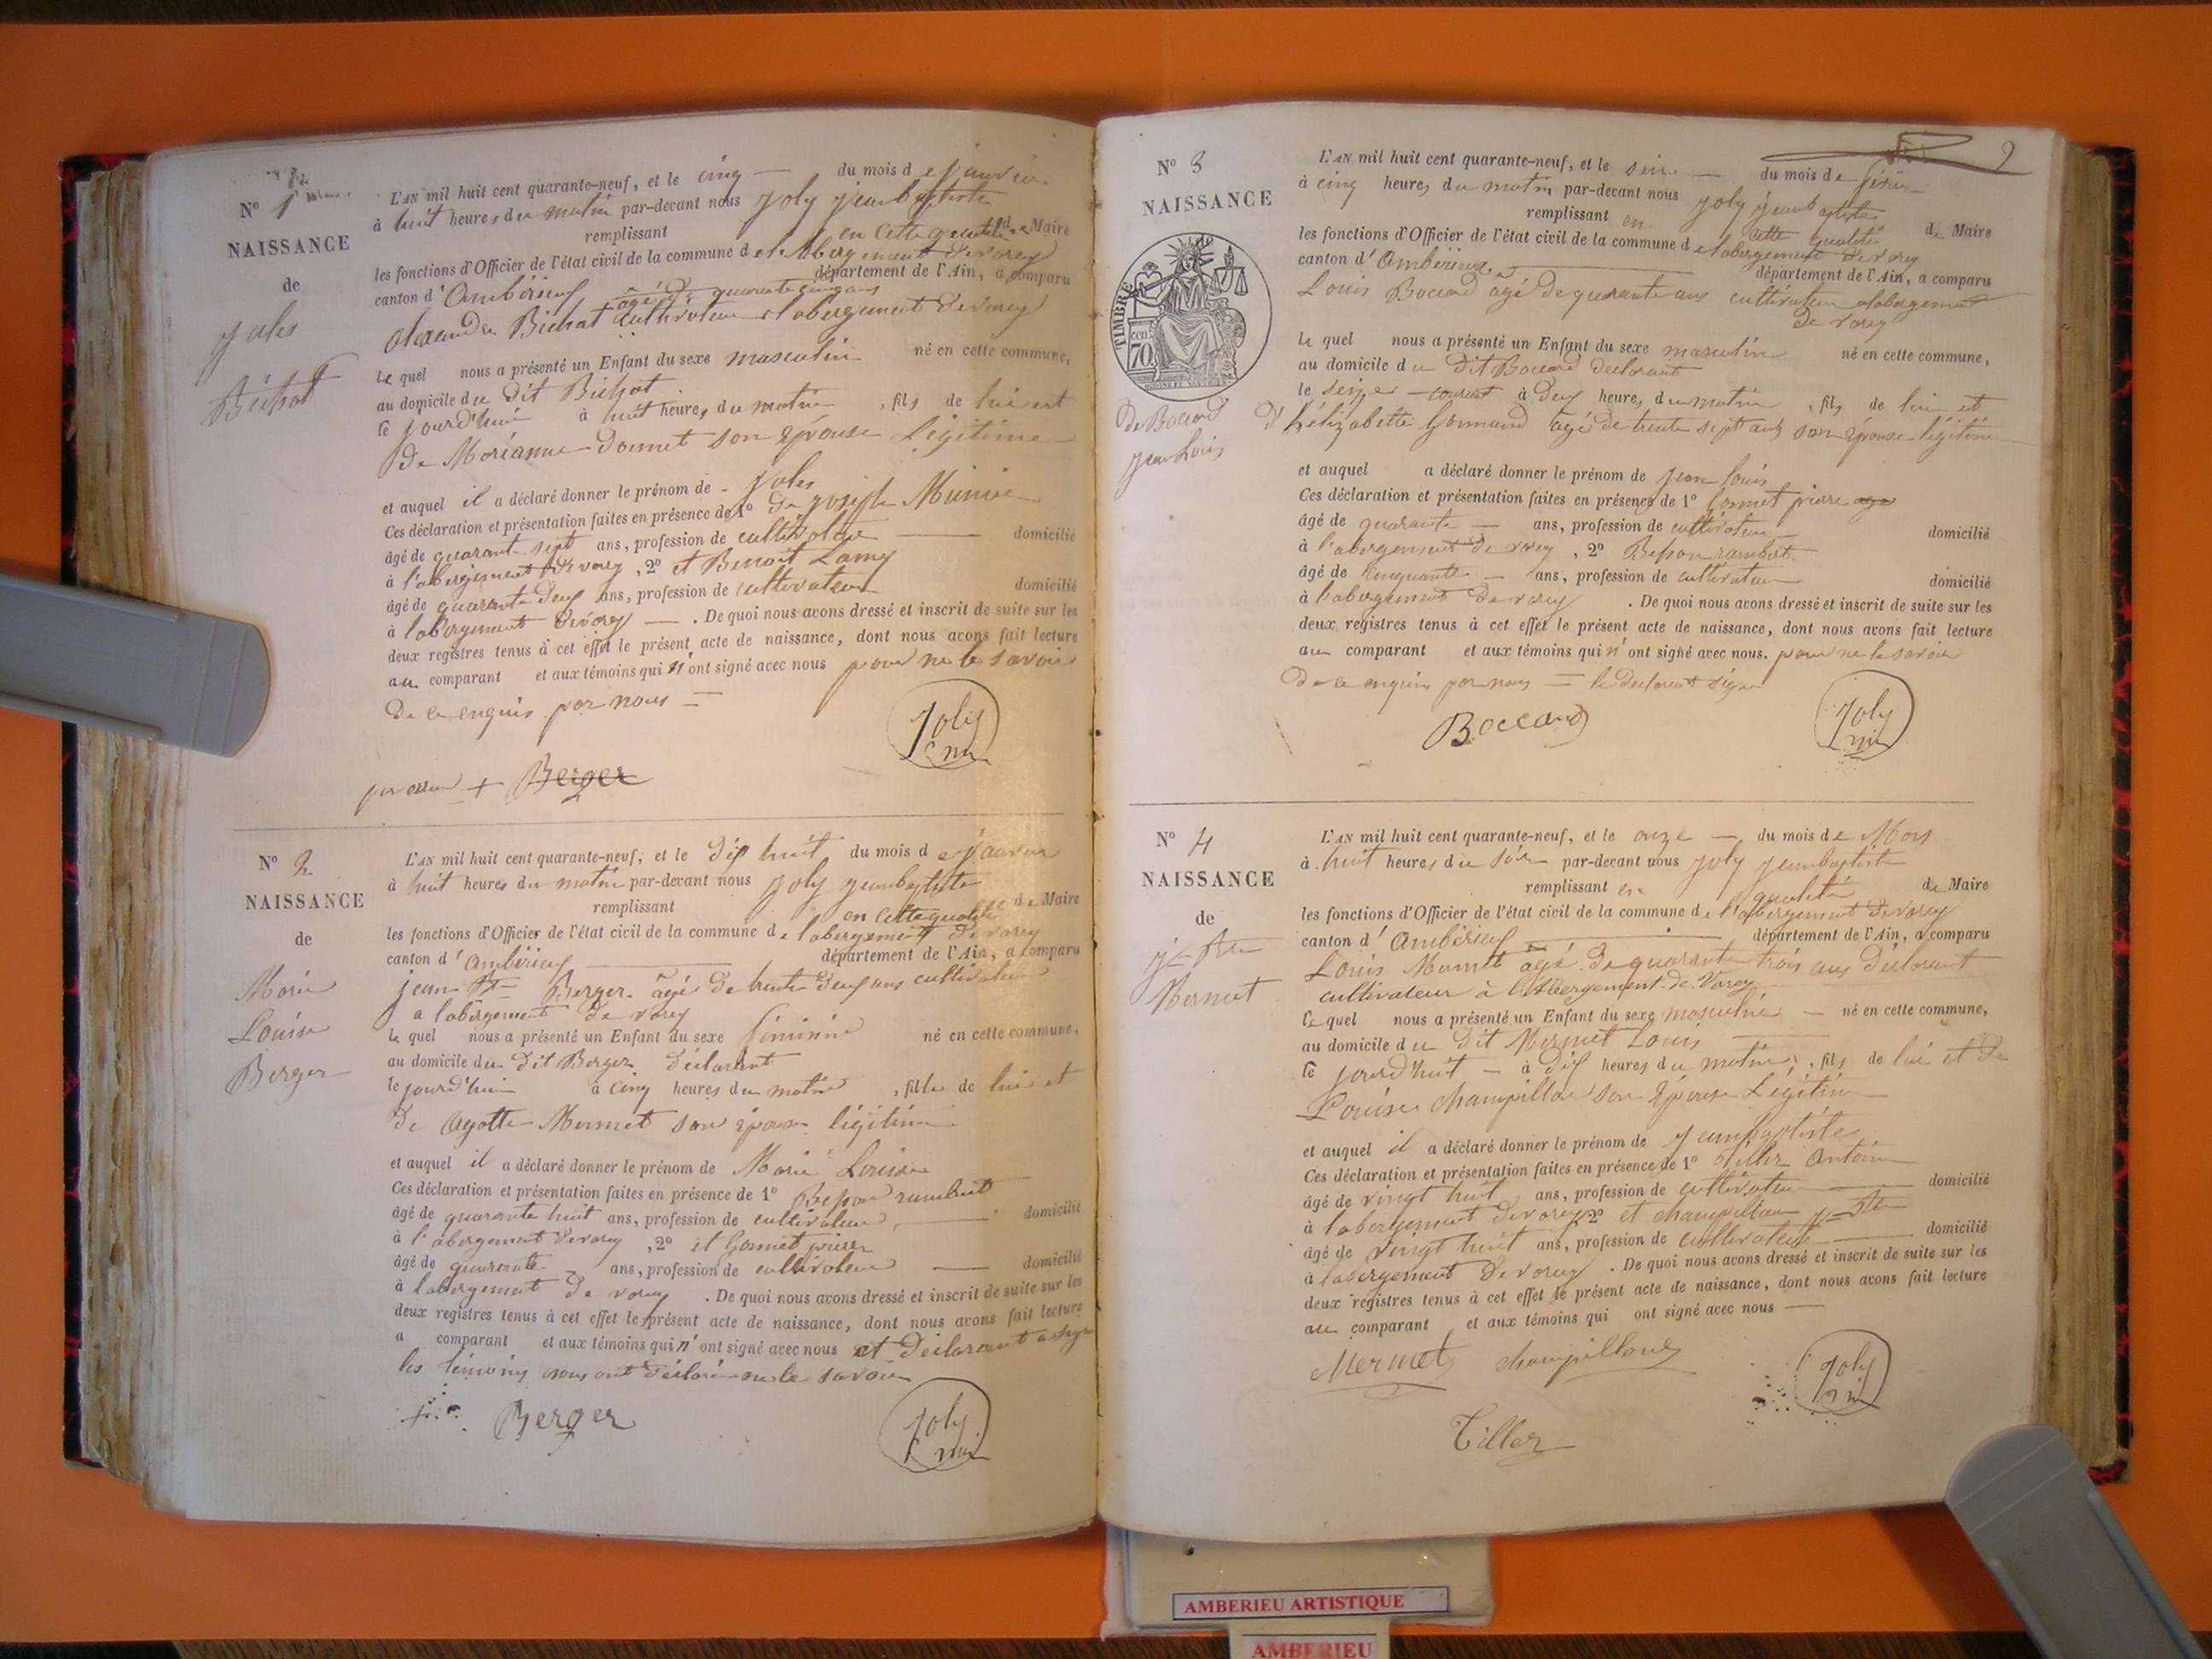 N° 1
NAISSANCE
de
Jules
Bichat
L'AN mil huit cent quarante-neuf, et le cinq du mois de janvier
à huit heures du matin par-devant nous Joly jeanbaptiste
remplissant en cette qualité de Maire
les fonctions d'Officier de l'état civil de la commune de labergement devarey
canton d'Ambérieux département de l'Ain, a comparu
âgé de quarante cinq ans
Bichat cultivateur labergement devarey
lequel nous a présenté un Enfant du sexe masculin né en cette commune,
au domicile du dit Bichat
le jourd'hui à huit heures du matin, fils de lui et
de Morianne Donnet son épouse Légitime
et auquel il a déclaré donner le prénom de Jules
Ces déclaration et présentation faites en présence de 1° de joseph
âgé de quarante sept ans, profession de domicilié
à l'abergement devarey, 2° et Benoit Lamy
âgé de quarante deux ans, profession de cultivateur domicilié
à labergement devarey. De quoi nous avons dressé et inscrit de suite sur les
deux registres tenus à cet effet le présent acte de naissance, dont nous avons fait lecture
au comparant et aux témoins qui n'ont signé avec nous pour ne le savoir
De ce enquis par nous =
Joly
par + Berger
N° 2
NAISSANCE
de
Marie
Louise
Berger
L'AN mil huit cent quarante-neuf, et le dix huit du mois de janvier
à huit heures du matin par-devant nous Joly jeanbaptiste
remplissant en cette qualité de Maire
les fonctions d'Officier de l'état civil de la commune de labergement devarey
canton d'Ambérieux département de l'Ain, a comparu
jean Bte Berger âgé de trente deux ans cultivateur
a labergement de varey
lequel nous a présenté un Enfant du sexe féminin né en cette commune,
au domicile du dit Berger déclarant
le jourd'hui à cinq heures du matin, fille de lui et
de Agatte Mermet son épouse légitime
et auquel il a déclaré donner le prénom de Marie Louise
Ces déclaration et présentation faites en présence de 1° Besson rambert
âgé de quarante huit ans, profession de cultivateur domicilié
à l'abergement devarey, 2° et Gormet pierre
âgé de quarante ans, profession de cultivateur domicilié
à labergement de varey. De quoi nous avons dressé et inscrit de suite sur les
deux registres tenus à cet effet le présent acte de naissance, dont nous avons fait lecture
a comparant et aux témoins qui n'ont signé avec nous et déclarant a signé
les témoins nous ont déclaré ne le savoir
Berger
Joly
2
N° 3
NAISSANCE
TIMBRE
cen. 70.
De Boccard
jean Louis
L'AN mil huit cent quarante-neuf, et le seize du mois de
à cinq heures du matin par-devant nous Joly jeanbaptiste
remplissant en cette qualité de Maire
les fonctions d'Officier de l'état civil de la commune de labergement devarey
canton d'Ambérieux département de l'Ain, a comparu
Louis Boccard agé de quarante ans cultivateur alabergement
de varey
lequel nous a présenté un Enfant du sexe masculin né en cette commune,
au domicile du dit Boccard déclarant
le seize courant à deux heures du matin, fils de lui et
d'hélizabette agé de trente sept ans son épouse légitime
et auquel a déclaré donner le prénom de jean louis
Ces déclaration et présentation faites en présence de 1° Gormet pierre age
âgé de quarante ans, profession de cultivateur domicilié
à l'abergement de varey, 2° Besson rambert
âgé de cinquante ans, profession de cultivateur domicilié
à l'abergement devarey. De quoi nous avons dressé et inscrit de suite sur les
deux registres tenus à cet effet le présent acte de naissance, dont nous avons fait lecture
au comparant et aux témoins qui n'ont signé avec nous. pour ne le savoir
De ce enquis par nous = le déclarant signé
Boccard
Joly
N° 4
NAISSANCE
de
jn Bte
Mermet
L'AN mil huit cent quarante-neuf, et le onze du mois de Mars
à huit heures du soir par-devant nous Joly jeanbaptiste
remplissant en qualité de Maire
les fonctions d'Officier de l'état civil de la commune de l'abergement devarey
canton d'Ambérieux département de l'Ain, a comparu
Louis Mermet agé de quarante trois ans déclarant
cultivateur à l'Abergement-de-Varey
lequel nous a présenté un Enfant du sexe masculin né en cette commune,
au domicile du dit Mermet Louis
le jourd'huit à dix heures du matin, fils de lui et de
Louise champillon son épouse Légitime
et auquel il a déclaré donner le prénom de jeanbaptiste
Ces déclaration et présentation faites en présence de 1° Tiller Antoine
âgé de vingt huit ans, profession de cultivateur domicilié
à labergement devarey, 2° et champillon jn Bte
âgé de vingt huit ans, profession de cultivateur domicilié
à labergement devarey. De quoi nous avons dressé et inscrit de suite sur les
deux registres tenus à cet effet le présent acte de naissance, dont nous avons fait lecture
au comparant et aux témoins qui ont signé avec nous
Mermet champillon
Joly
Tiller
AMBERIEU ARTISTIQUE
AMBERIEU